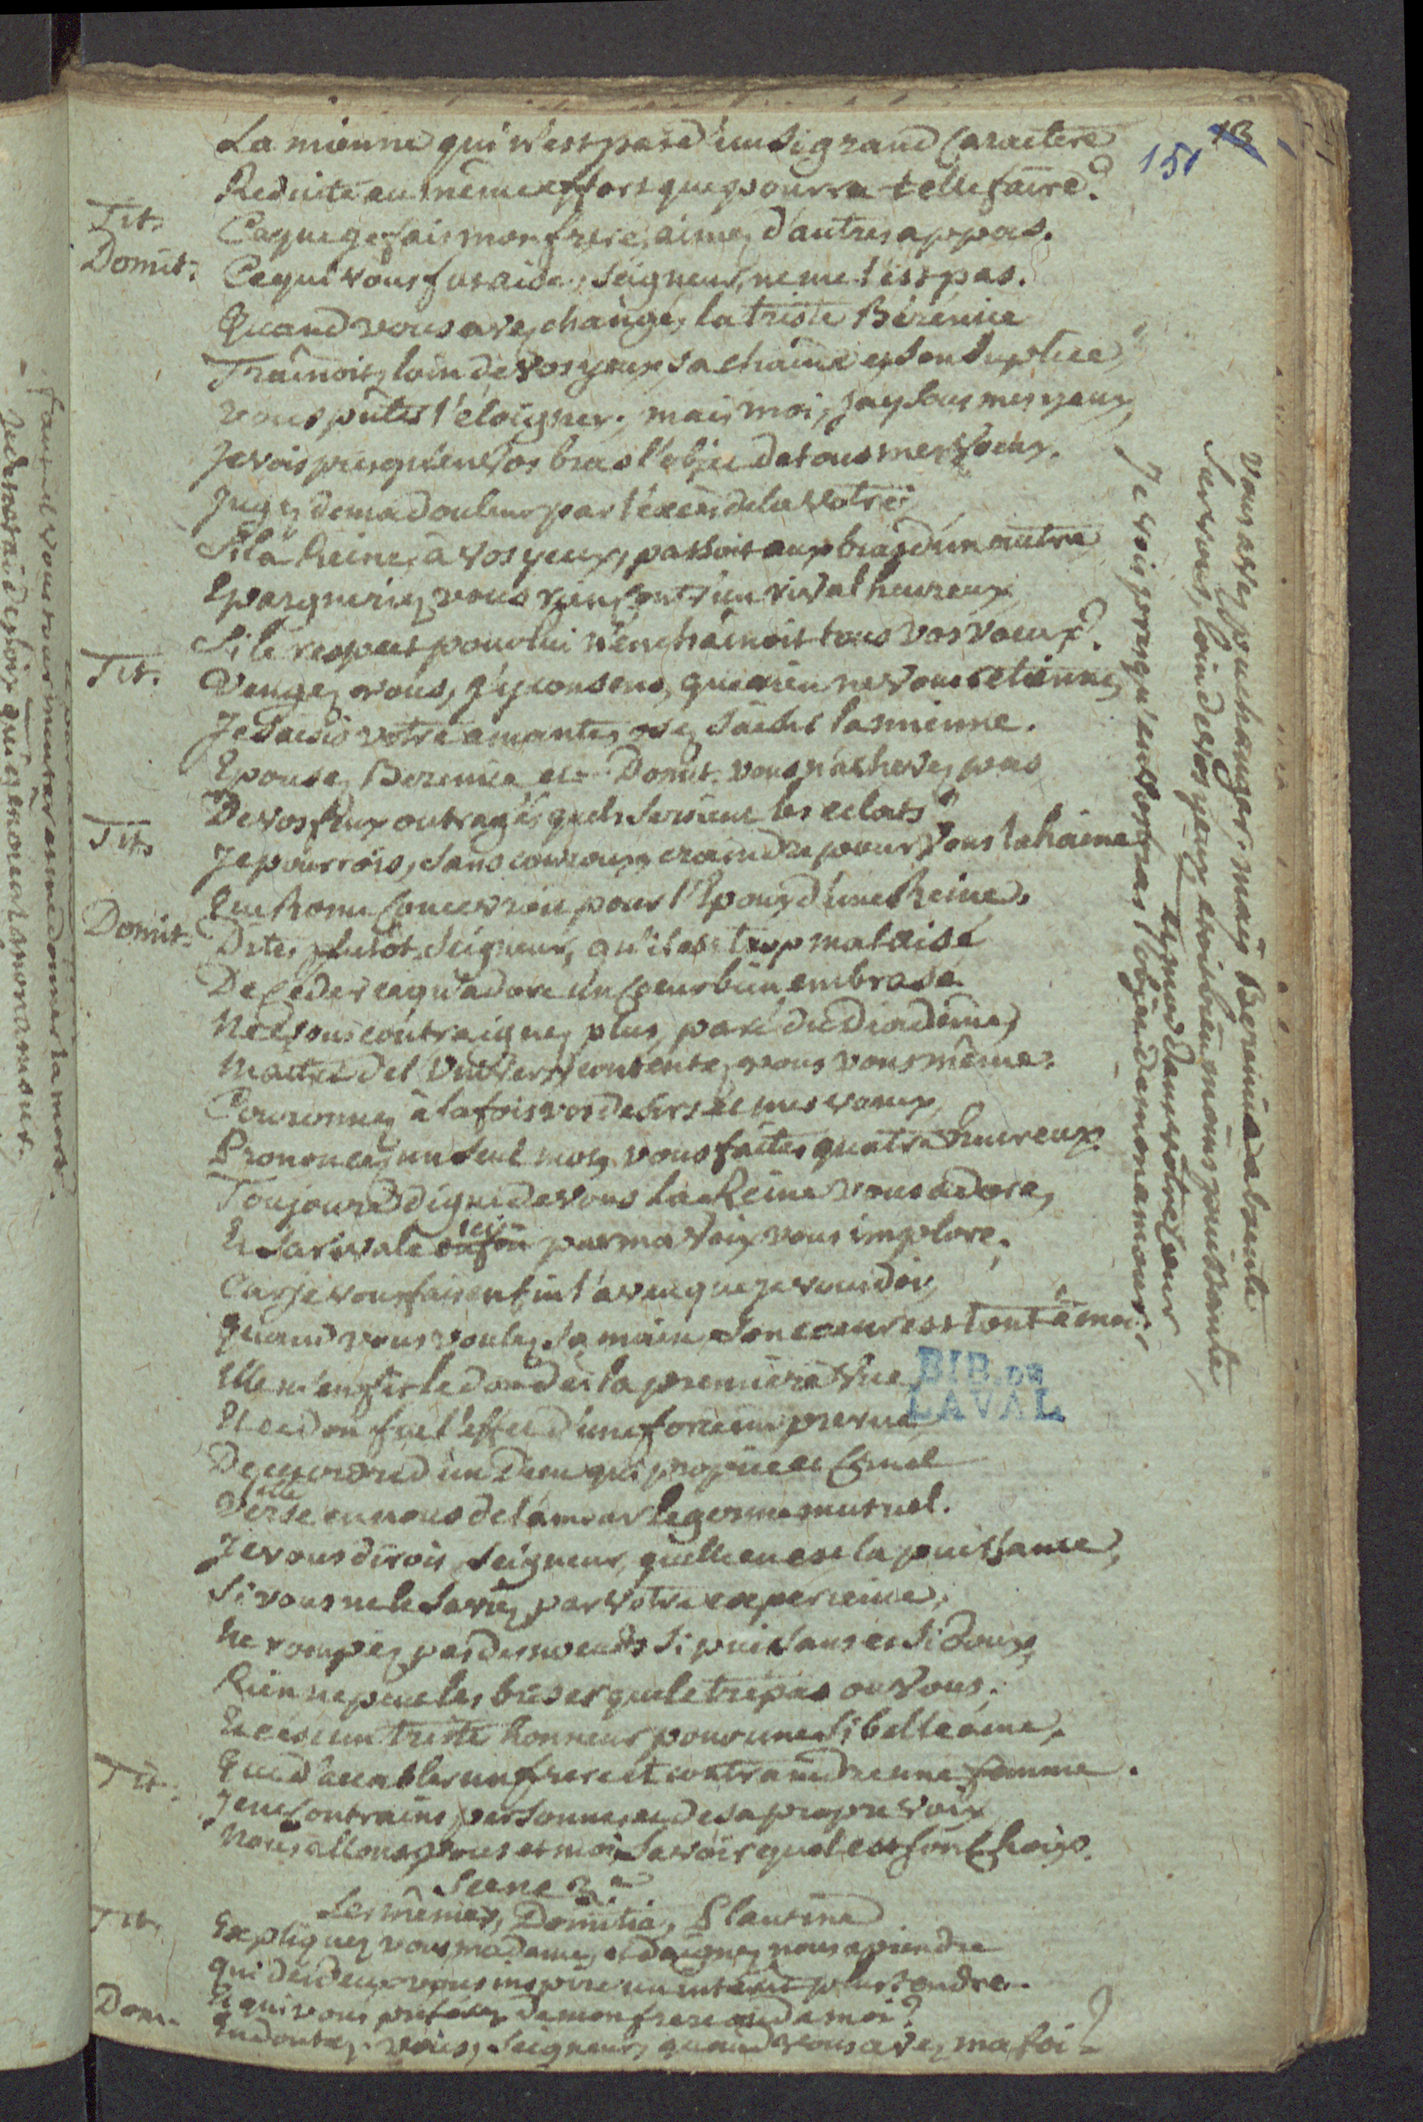 151
13
La mienne qui n'est pas d'un si grand Caractere
Reduite au même effort que pourra t elle faire?
Tit. Ce que je fais mon frere, aimez d'autres appas.
Domit. Ce qui vous fut aisé, Seigneur, ne me l'est pas.
Quand vous avez changé, la triste Bérénice
Traînoit, loin de vos yeux, sa chaîne et son suplice,
vous pûtes l'éloigner, mais moi, j'ay sous mes yeux,
Je vois presqu'en vos bras l'objet de tous mes voeux.
Jugez de ma douleur par l'excès de la votre
Si la Reine, à vos yeux, passoit aux bras d'un autre
Epargneriez vous rien contr'un rival heureux
Si le respect pour lui n'enchaînoit tous vos voeux?
Tit. Vengez vous, j'y consens, que rien ne vous retienne,
Je saisis votre amante, osez saisir la mienne.
Epousez Berenice et - Domit. vous n'achevez pas
De vos feux outragés quels seroient les eclats?
Tit. Je pourrois, sans courroux, craindre pour vous la haine
Que Rome concevroit pour l'Epoux d'une Reine.
Domit. Dites plutôt, Seigneur, qu'il est trop malaisé
De ceder ce qu'adore un coeur bien embrasé.
Ne vous contraignez plus, paré du diadême,
Maitre de l'Univers contentez vous vous même.
Couronnez à la fois vos desirs et mes voeux,
Prononcez un seul mot, vous faites quatre heureux
Toujours digne de vous la Reine vous adore,
Et sa rivale ici par ma voix vous implore.
Car je vous fais enfin l'aveu que je vous dois,
Quand vous voulez sa main, son coeur est tout à moi.
Elle m'en fit le don dès la premiere vue,
Et ce don fut l'effet d'une force imprevue
De cet ordre d'un Dieu qui propice et cruel
Verse en nous de l'amour le germe mutuel.
Je vous dirois, Seigneur, quelle en est la puissance,
Si vous ne le saviez par votre experience.
Ne rompez pas des noeuds si puissans et si doux,
Rien ne peut les briser que le trépas ou vous.
Et c'est un triste honneur pour une si belle ame,
Que d'accabler un frere et contraindre une femme.
Tit. Je ne contrains personne, et de sa propre voix
Nous allons, vous et moi, savoir quel est son choix.
Scene 2.e
Les mêmes, Domitia, Plautine
Tit. Expliquez vous madame, et daignez nous aprendre
Qui des deux vous inspire un interêt plus tendre.
Et qui vous préferez de mon frere ou de moi?
Dom. En doutez-vous, Seigneur, quand vous avez ma foi?
BIB. DE
LAVAL
Vous avez pu changer. mais Berenice absente
Servoit, loin de vos yeux, etoit bien moins puissante,
et quand dans votre coeur
Je vois presqu'en vos bras l'objet de mon amour.
faut il vous tourmenter et me donner la mort.